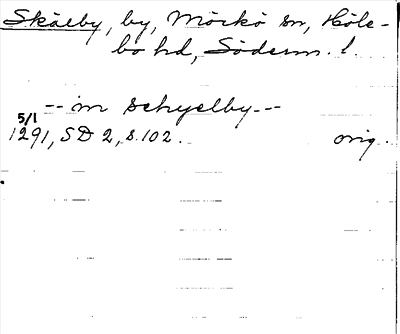 Skälby, by, Mörkö sn, Höle-
bo hd, Söderm. l.
-- in schyelby --
5/1
1291, SD 2, s. 102. orig.